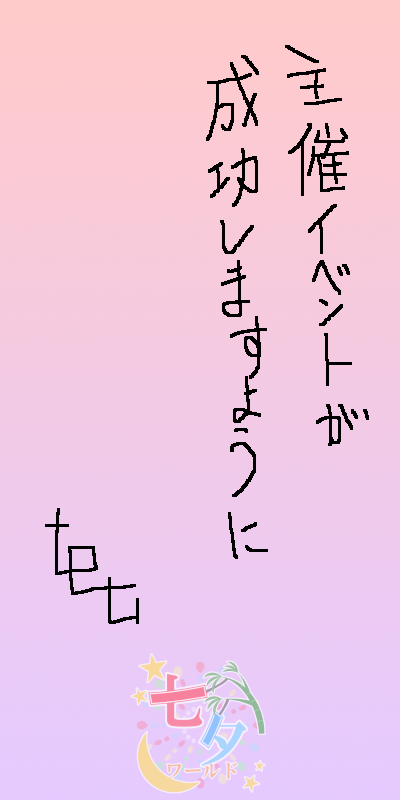 主催イベントが
成功しますように
tet
七夕
ワールド